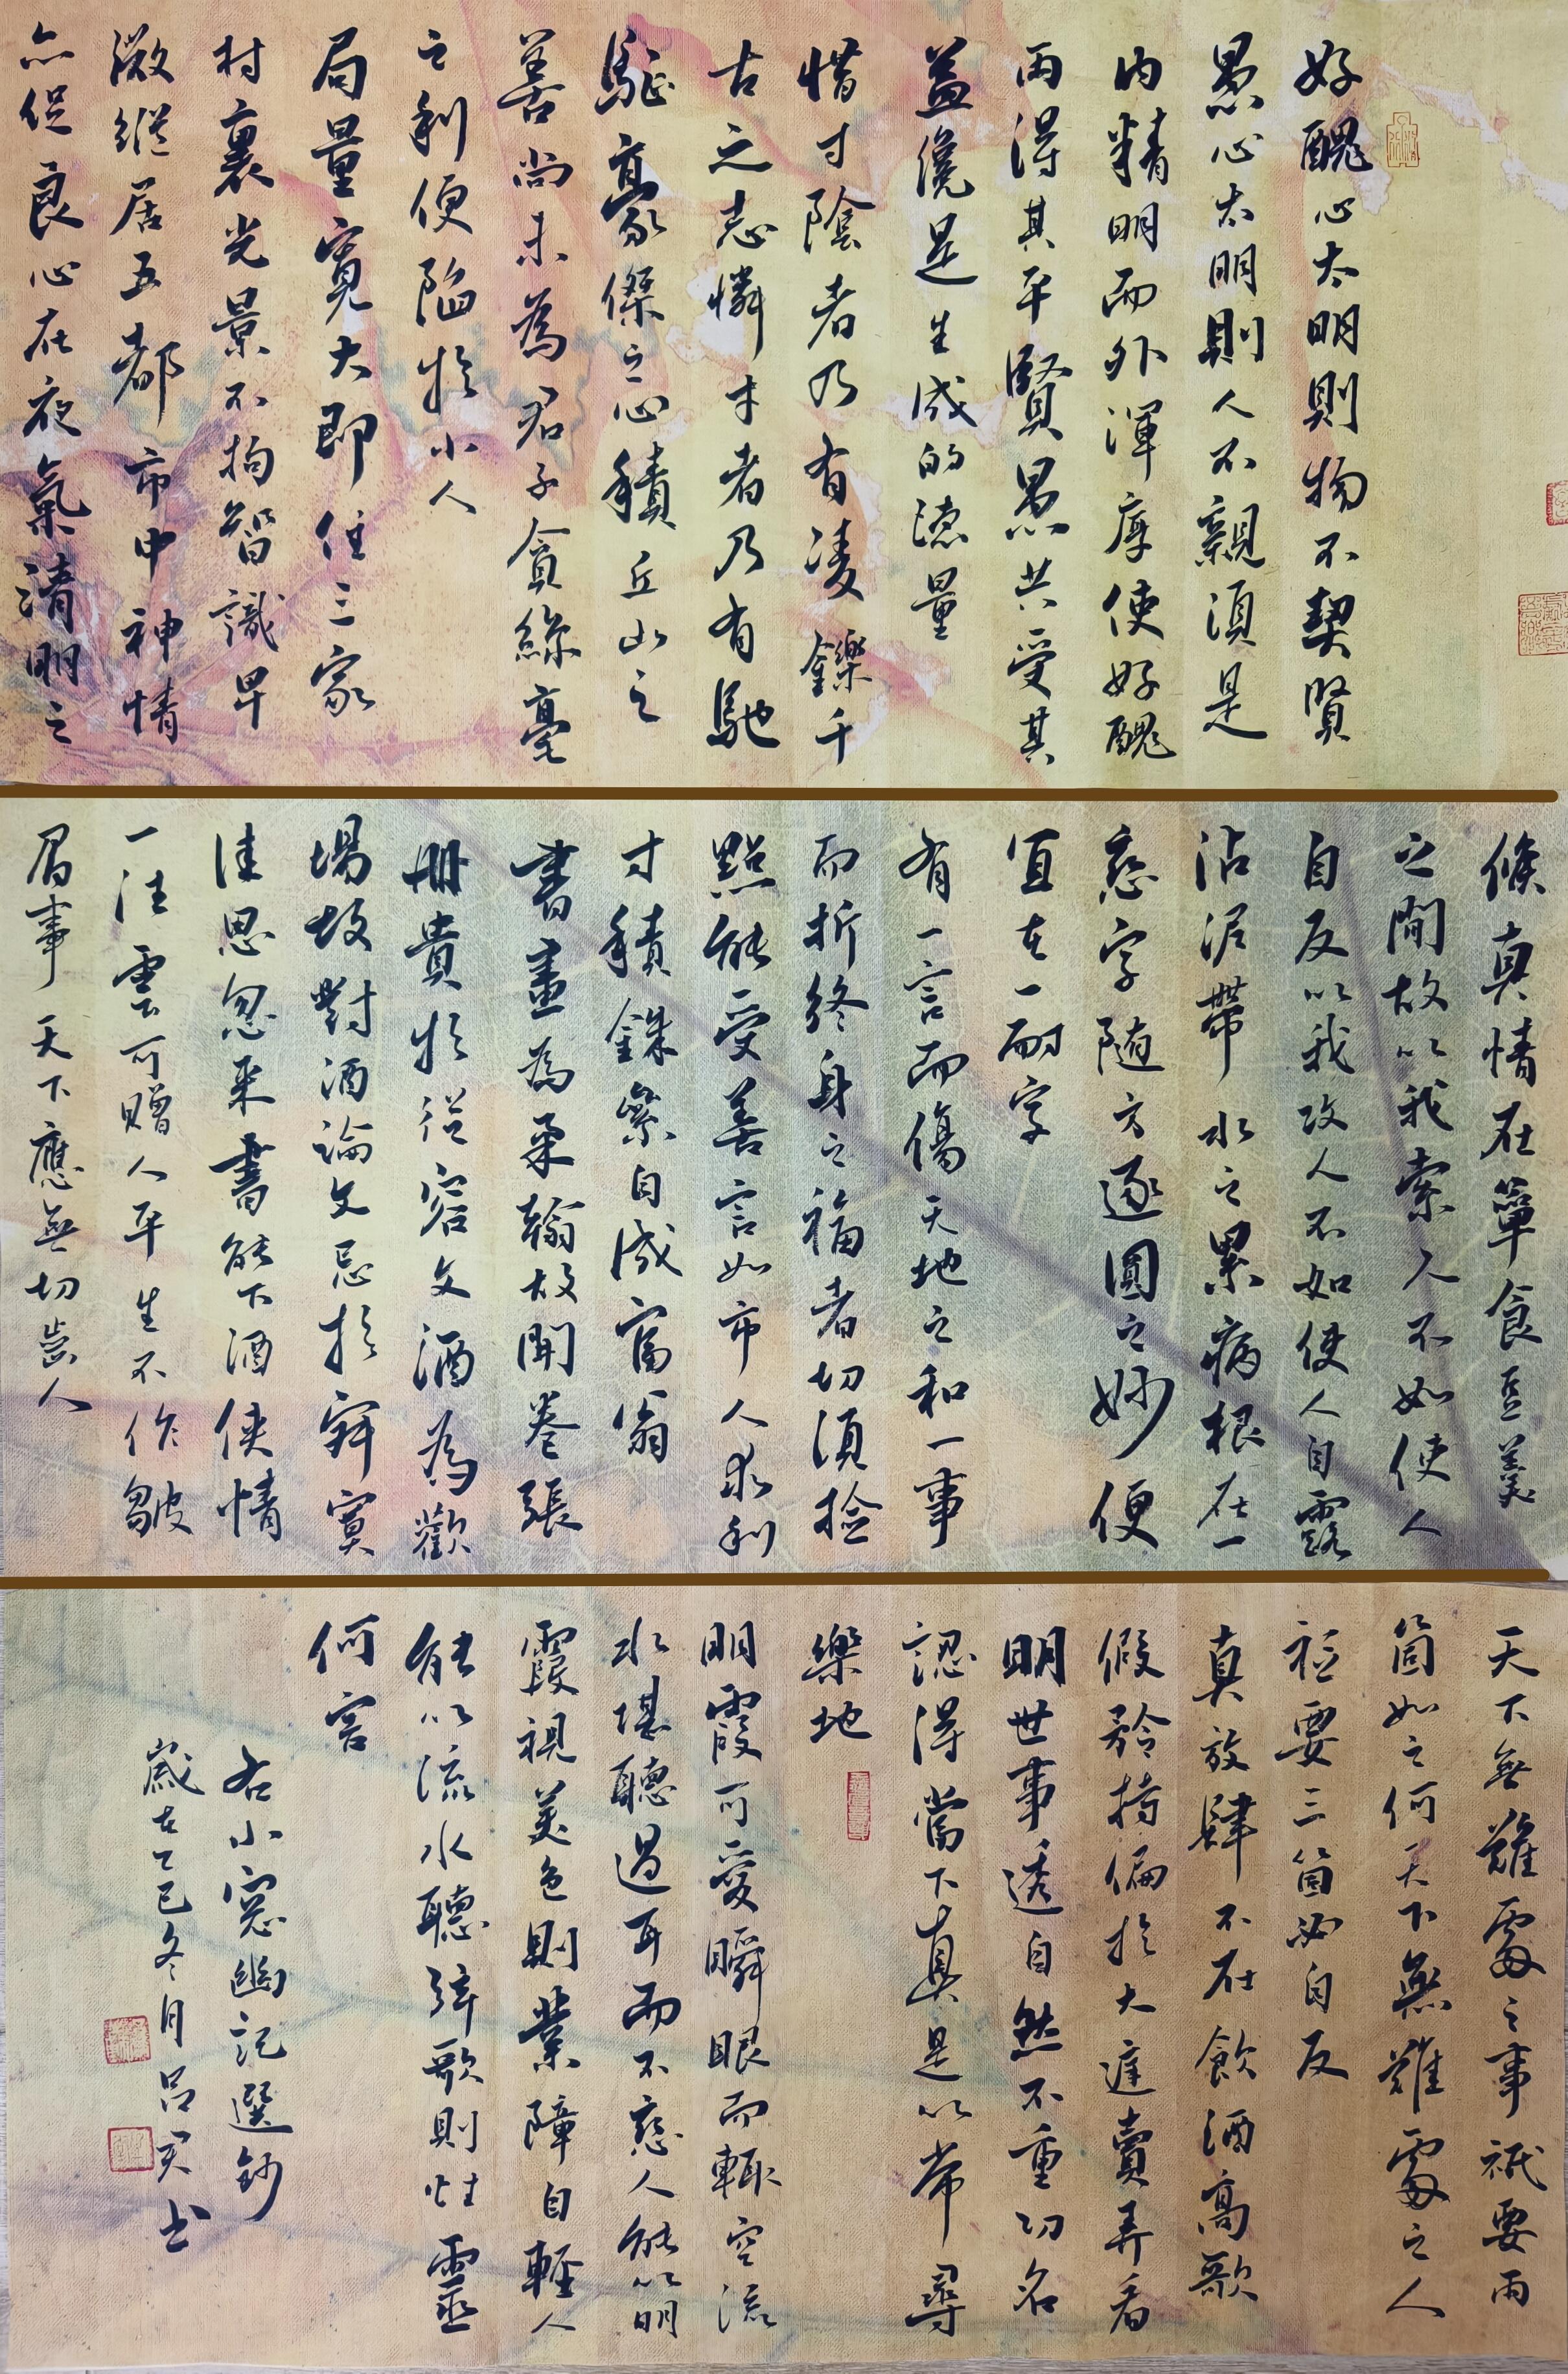 好醜心太明則物不契賢
愚心太明則人不親須是
內精明而外渾厚使好醜
兩得其平賢愚共受其
益儘是生成的德量
惜寸陰者乃有凌鑠千
古之志憐才者乃有馳
驅豪傑之心積丘山之
善尚未為君子貪絲毫
之利便陷於小人
局量寬大即住三家
村裏光景不拘智識卑
微縱居五都市中神情
亦促良心在夜氣清明之
候真情在簞食豆羹
之間故以我索人不如使人
自反以我攻人不如使人自露
沾泥帶水之累病根在一
戀字隨方逐圓之妙便
宜在一耐字
有一言而傷天地之和一事
而折終身之福者切須撿
點能受善言如市人求利
寸積銖纍自成富翁
書畫為柔翰故開卷張
冊貴於從容文酒為歡
場故對酒論文忌於寂寞
佳思忽來書能下酒俠情
一往雲可贈人平生不作皺
眉事天下應無切齒人
天下無難處之事祇要兩
箇如之何天下無難處之人
祇要三箇必自反
真放肆不在飲酒高歌
假矜持偏於大庭賣弄看
明世事透自然不重功名
認得當下真是以常尋
樂地
明霞可愛瞬眼而輒空流
水堪聽過耳而不戀人能以明
霞視美色則業障自輕人
能以流水聽弦歌則性靈
何害
右小窗幽記選鈔
歲在乙巳冬月呂天書